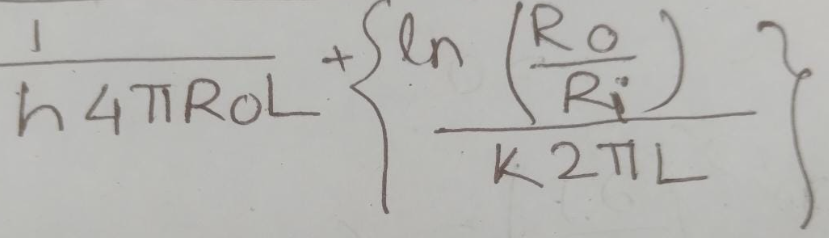 1/(h4πRoL) + {ln(Ro/Ri)/(K2πL)}